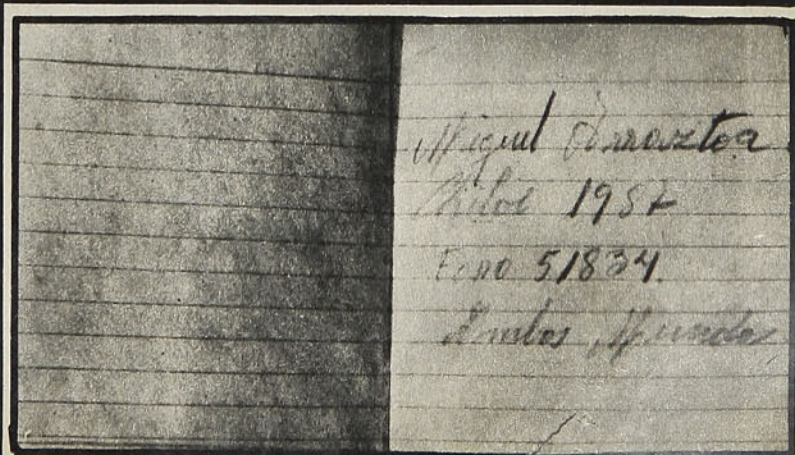 Miguel Arraztoa
Chiloé 1957
Fono 51834.
Ambos Mundos